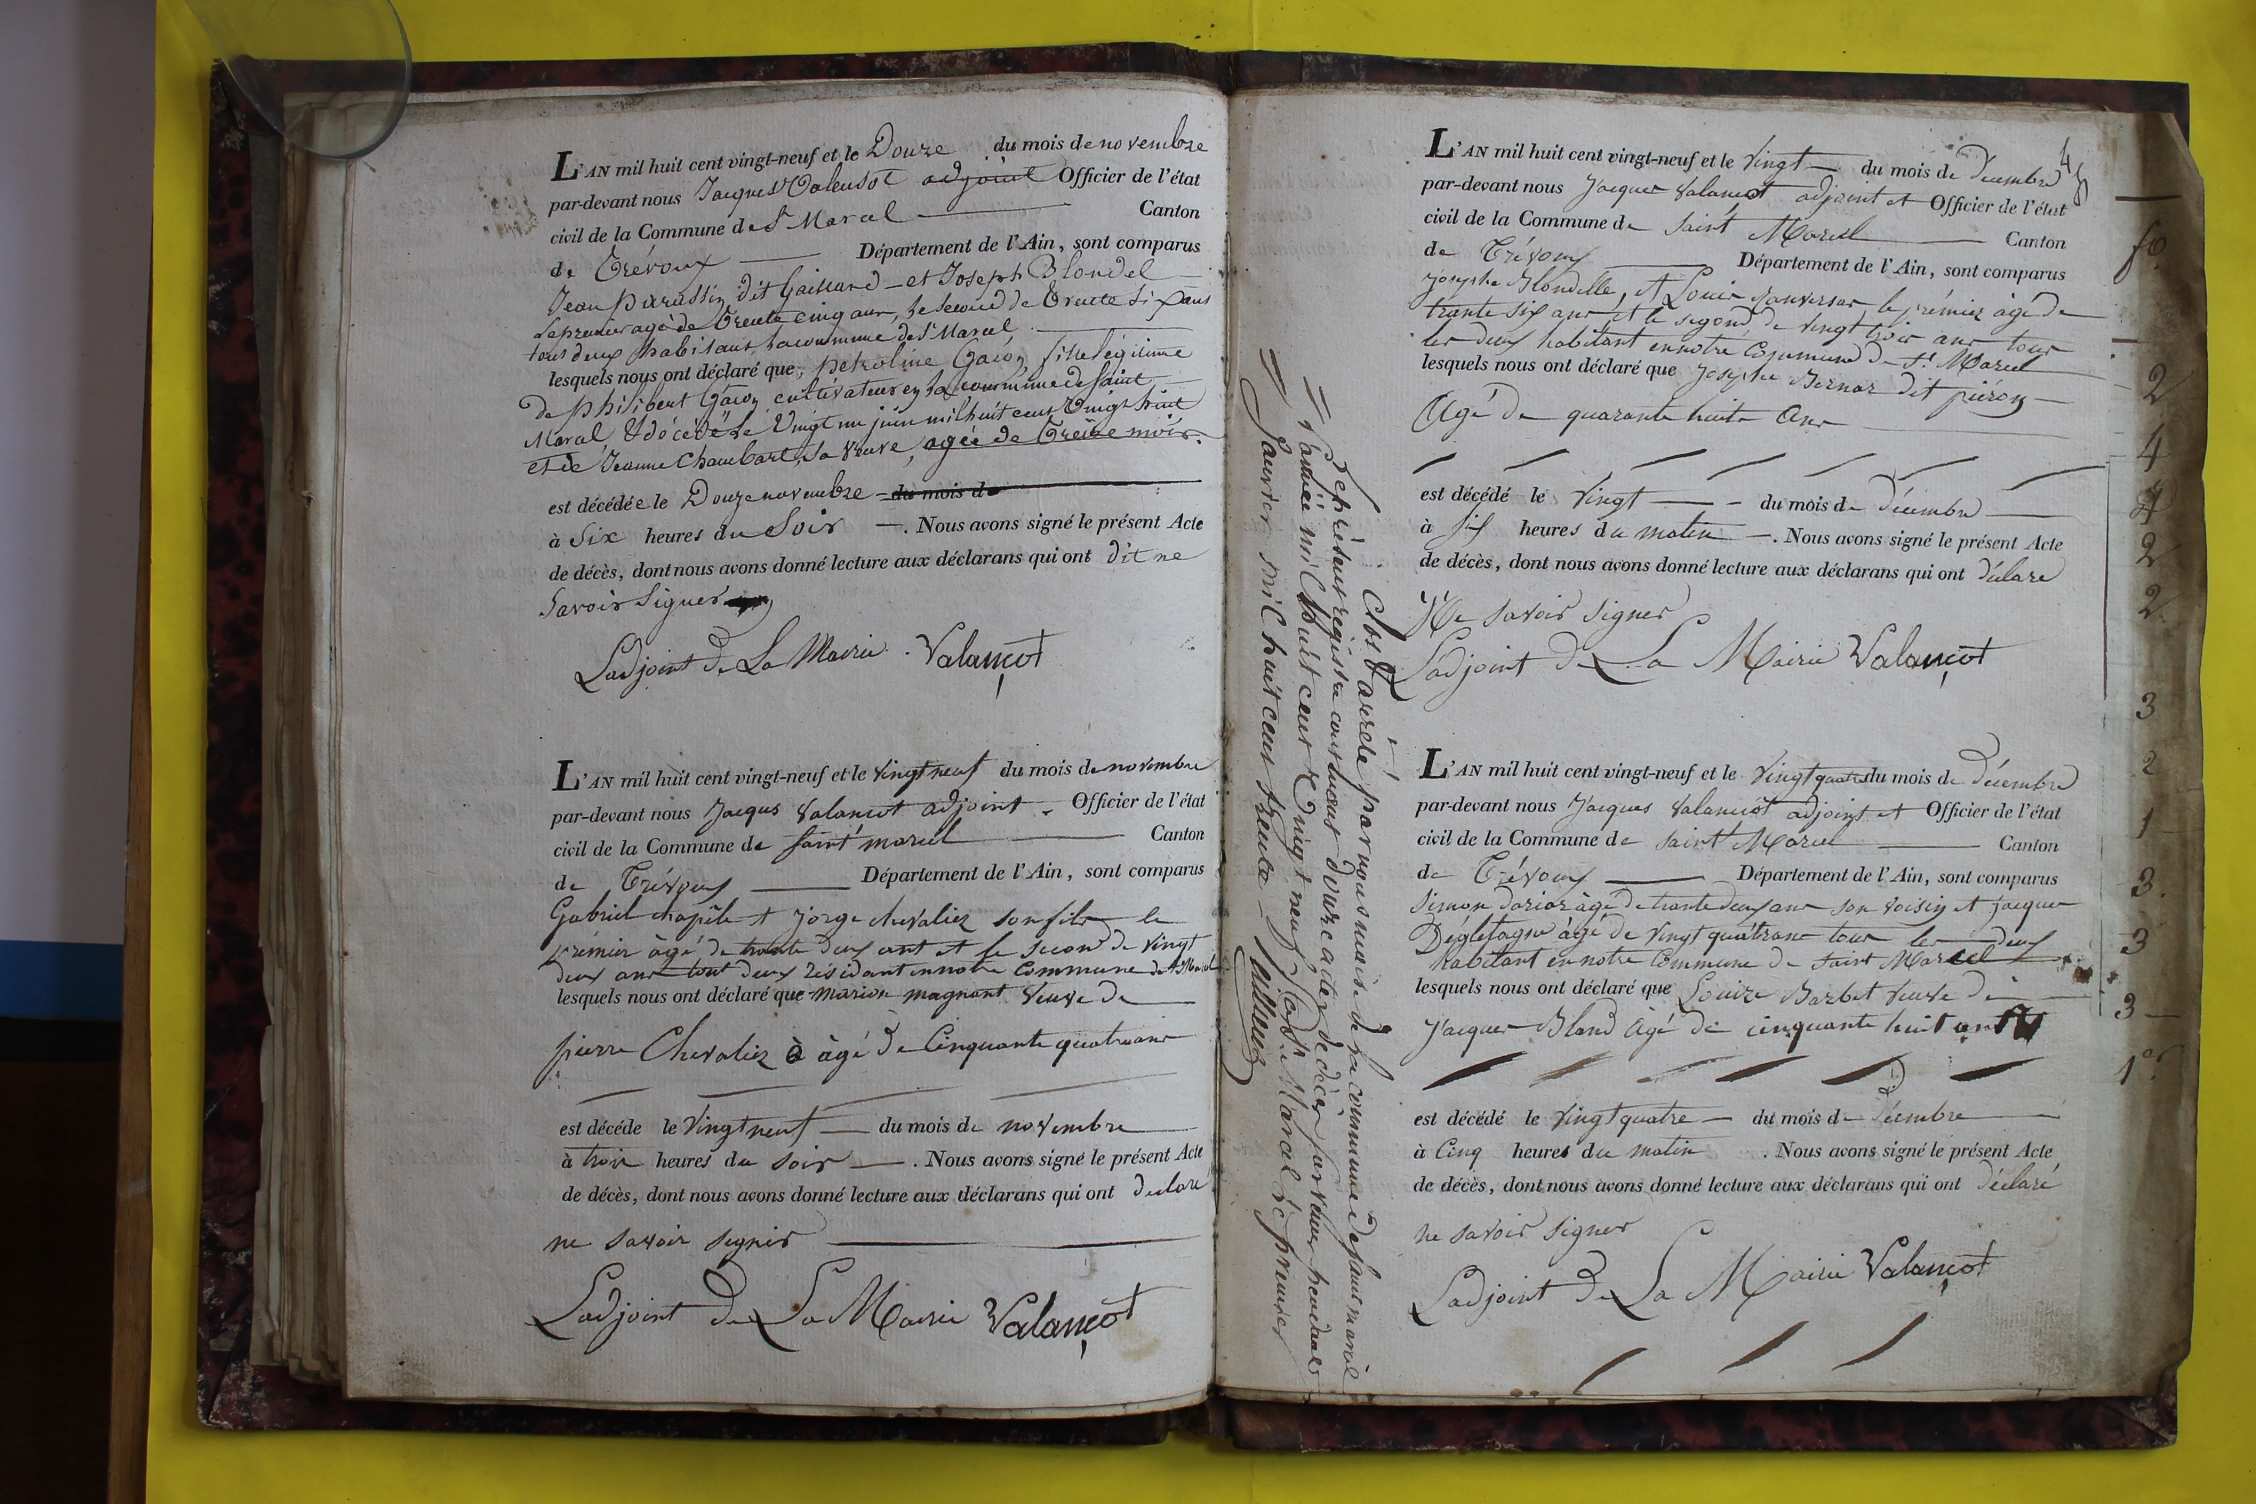 L'AN mil huit cent vingt-neuf et le Douze du mois de novembre
par-devant nous Jacques Valensot adjoint Officier de l'état
civil de la Commune de St Marcel Canton
de Trévoux Département de l'Ain, sont comparus
Jean dit Gaillard et Joseph Blondel
Le premier agé de Trente cinq ans, Le second de Trente six ans
tous deux habitans la commune de St Marcel
lesquels nous ont déclaré que, petroline Gacon fille légitime
de philibert Gacon cultivateur en la commune de saint
Marcel, décédé le Vingt un juin mil huit cent Vingt huit
et de Jeanne Chambart sa veuve, agée de Treize mois.
est décédée le Douze novembre du mois de
à Six heures du Soir. Nous avons signé le présent Acte
de décès, dont nous avons donné lecture aux déclarans qui ont dit ne
Savoir Signer
Ladjoint De La Mairie Valançot
L'AN mil huit cent vingt-neuf et le vingt neuf du mois de novembre
par-devant nous Jacques Valancot adjoint Officier de l'état
civil de la Commune de saint marcel Canton
de Trévoux Département de l'Ain, sont comparus
Gabriel chapêle et jorge chevaliez son fils le
prémier àgé de trante deux ant et le second de vingt
deux ans tout deux résidant en notre Commune de St Marcel
lesquels nous ont déclaré que marion magnant veuve de
pierre Chevaliez à àgé de Cinquante quatre ans
est décéde le vingt neuf du mois de novembre
à trois heures du soir. Nous avons signé le présent Acte
de décès, dont nous avons donné lecture aux déclarans qui ont déclaré
ne savoir segnier
Ladjoint De La Mairie Valançot
Clos et arrêté par nous maire de la commune de saint marcel
Le présent régistre contenant douze actes de décès survenus pendant
L'année mil huit cent Vingt neuf. St Marcel le premier
Janvier mil huit cent trente
48
L'AN mil huit cent vingt-neuf et le vingt du mois de Décembre
par-devant nous Jacques Valancot adjoint et Officier de l'état
civil de la Commune de Saint Marcel Canton
de Trévoux Département de l'Ain, sont comparus
Josephe Blondelle, et Louis Janversar le prémier àgé de
trante six ans et le segond de vingt trois ans tous
les deux habitant en notre Commune de St Marcel
lesquels nous ont déclaré que Josephe Bernar dit piéron
Agé de quarante huite ans
est décédé le vingt du mois de Décembre
à six heures du matin. Nous avons signé le présent Acte
de décès, dont nous avons donné lecture aux déclarans qui ont déclaré
Ne savoir signer
Ladjoint De La Mairie Valançot
L'AN mil huit cent vingt-neuf et le vingt quatre du mois de Décembre
par-devant nous Jacques Valancot adjoint et Officier de l'état
civil de la Commune de saint Marcel Canton
de Trévoux Département de l'Ain, sont comparus
Simon Darior àgé de trante deux ans son voisin et jacques
Dégletagne àgé de vingt quatrans tous les deux
habitant en notre Commune de saint Marcel
lesquels nous ont déclaré que Louize Barbet veuve de
Jacques Bland agé de cinquante huit ans
est décédé le vingt quatre du mois de Décembre
à Cinq heures du matin. Nous avons signé le présent Acte
de décès, dont nous avons donné lecture aux déclarans qui ont déclaré
ne savoir signer
Ladjoint De La Mairie Valançot
fo
2
4
2
2
3
2
1
3
3
3
1er